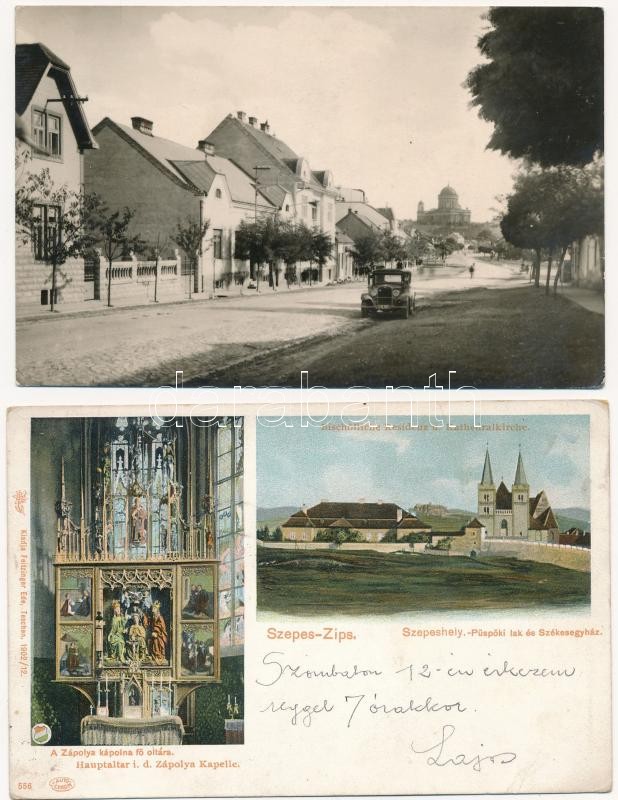 darabanth
Bischöfliche Residenz u. Kathedralkirche.
Kiadja Feitzinger Ede, Teschen, 1902/12.
Szepes-Zips.
Szepeshely.-Püspöki lak és Székesegyház.
Szombaton 12-én érkezem
reggel 7 órakkor.
Lajos
A Zápolya kápolna fő oltára.
Hauptaltar i. d. Zápolya Kapelle.
556
AUTO
CHROM